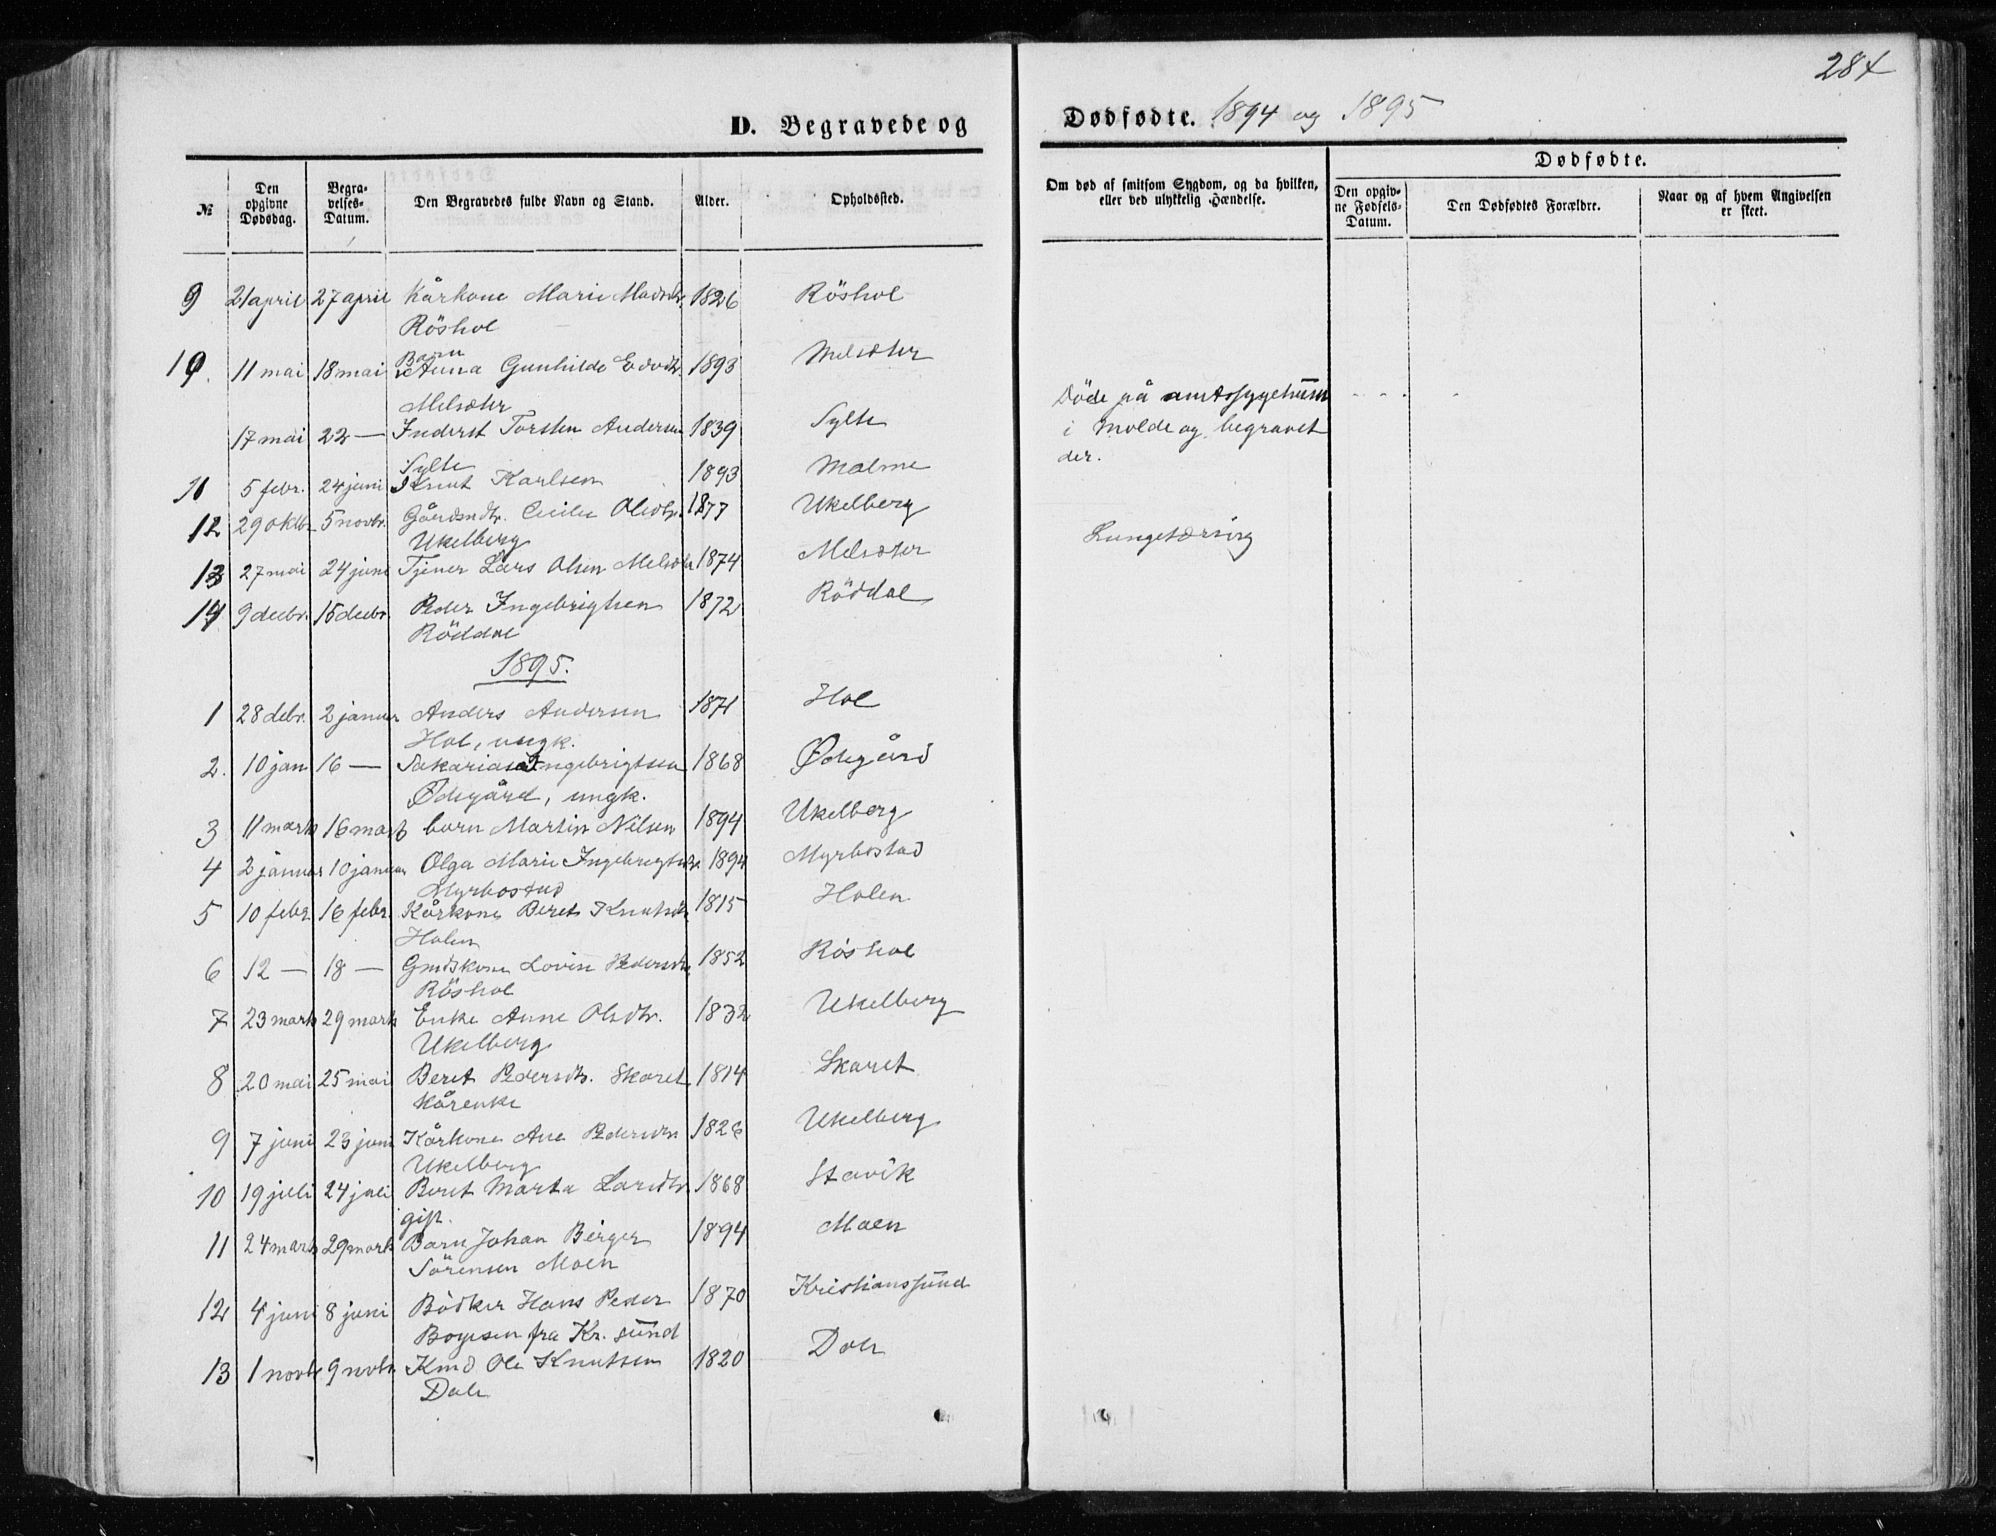 284
D. Begravede og Dødfødte. 1894 og 1895
№
Den opgivne Dødsdag.
Begravelses-Datum.
Den Begravedes fulde Navn og Stand.
Alder.
Opholdssted.
Om død af smitsom Sygdom, og da hvilken, eller ved ulykkelig Hændelse.
Dødfødte.
Den opgivne Fødsels-Datum.
Den Dødfødtes Forældre.
Naar og af hvem Angivelsen er skeet.
9 21 april 27 april Kårkone Marie Madsdtr. 1826 Röshol
Röshol
10. 11 mai 18 mai Barn Anna Gunhilde Edvdtr. 1893 Melsæter
Melsæter
17 mai 22 — Inderst Torsten Andersen 1839 Sylte
Sylte
Döde på amtssygehuset
i Molde og begravet
der.
11 5 febr. 24 juni Knut Karlsen 1893 Malme
12 29 oktbr 5 novbr. Gårdmdtr. Cecilie Olsdtr. 1877 Ukelberg
Ukelberg
Lungetæring
13 27 mai 24 juni Tjener Lars Olsen Melsæter 1874 Melsæter
14 9 decbr. 15 decbr. Peder Ingebrigtsen 1872 Röddal
Röddal
1895.
1 28 debr. 2 januar Anders Andersen 1871 Hol
Hol, ungk.
2. 10 jan 16 — Sakarias Ingebrigtsen 1868 Ødegård
Ødegård, ungk.
3 11 marts 16 marts barn Martin Nilsen 1894 Ukelberg
4 2 januar 10 januar Olga Marie Ingebrigtsdtr. 1894 Myrbostad
Myrbostad
5 10 febr. 16 febr. Kårkone Beret Knutsdtr. 1815 Holen
Holen
6 12 — 18 — Gmdskone Lovise Pedersdtr. 1852 Röshol
Röshol
7 23 marts 29 marts Enke Anne Olsdtr. 1832 Ukelberg
Ukelberg
8 20 mai 25 mai Beret Pedersdtr. Skaret 1814 Skaret
Kårenke
9 7 juni 23 juni Kårkone Ane Pedersdtr 1826 Ukelberg
Ukelberg
10 19 juli 24 juli Beret Marta Larsdtr 1868 Stavik
gift.
11 24 marts 29 marts Barn Johan Birger 1894 Moen
Sörensen Moen
12 4 juni 8 juni Bödker Hans Peder 1870 Kristianssund
Boysen fra Kr. sund
13 1 novbr 9 novbr Kmd Ole Knutsen 1820 Dale
Dale